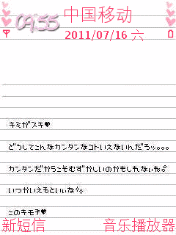 09:55
中国移动
2011/07/16 六
キミがスキ♥
どうしてこんなカンタンなコトいえないんだろッ。。。
カンタンだからこそむずかしいのかもしれないね。
いつかいえるといいな。
このキモチ♥
新短信 音乐播放器